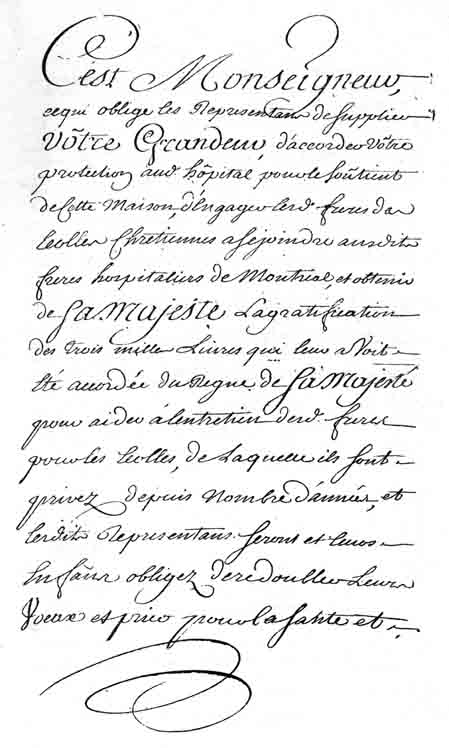 C'est Monseigneur,
ce qui oblige les Representans de supplier
Vôtre Grandeur, d'accorder Vôtre
protection aud. hôpital pour le soûtient
de Cette Maison, d'Engager lesd. freres des
Ecolles Chretiennes a se joindre ausdits
freres hospitaliers de Montreal, et obtenir
de Sa Majesté La gratification
des trois mille Livres qui leur avoit
été accordée du Regne de Sa Majesté
pour aider à l'entretien desd. freres
pour les Ecolles, de Laquelle ils sont
privez depuis Nombre d'années, et
lesdits Representans seront et leurs
Enfans obligez de redoubler Leurs
Voeux et prier pour la santé et